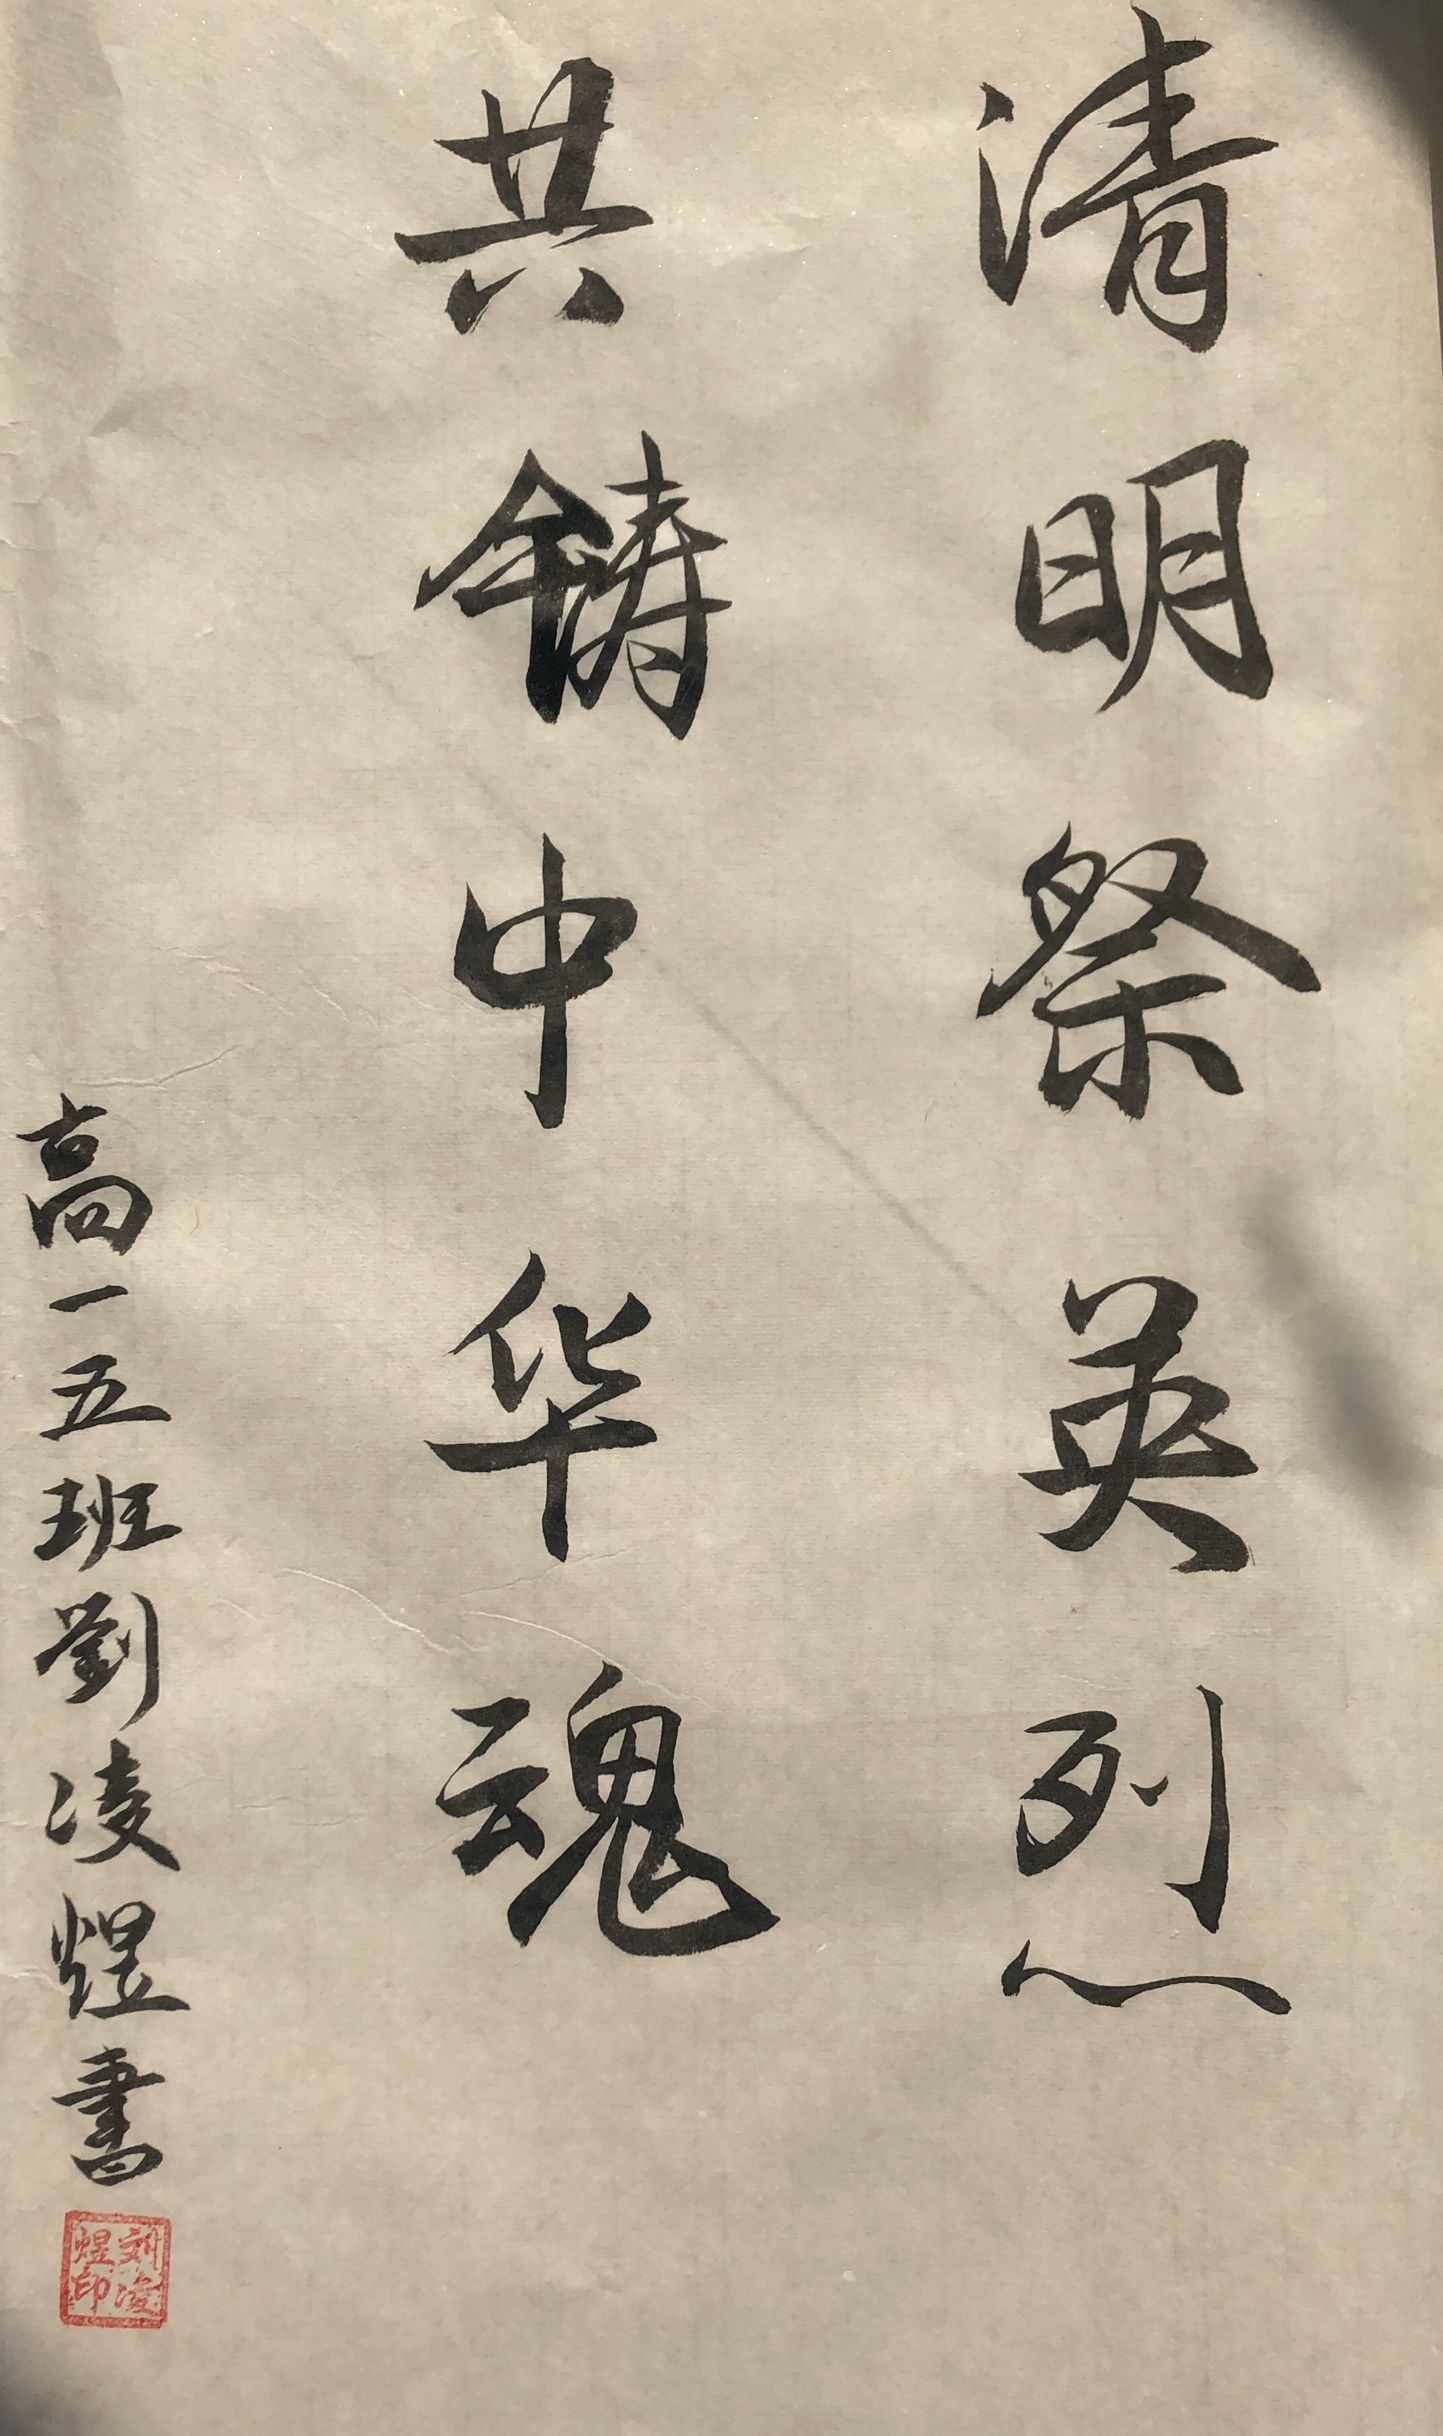 清明祭英烈
共铸中华魂
高一五班劉凌煜書
刘凌煜印